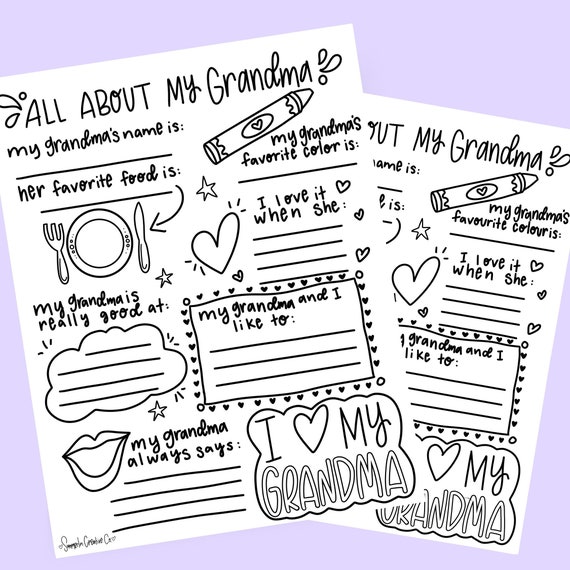 ALL ABOUT MY Grandma
my grandma's name is:
her favorite food is:
my grandma's
favorite color is:
I love it
when she:
my grandma is
really good at:
my grandma and I
like to:
my grandma
always says:
I MY
GRANDMA
OUT MY Grandma
is:
is:
my grandma's
favourite colour is:
I love it
when she:
grandma and I
like to:
MY
GRANDMA